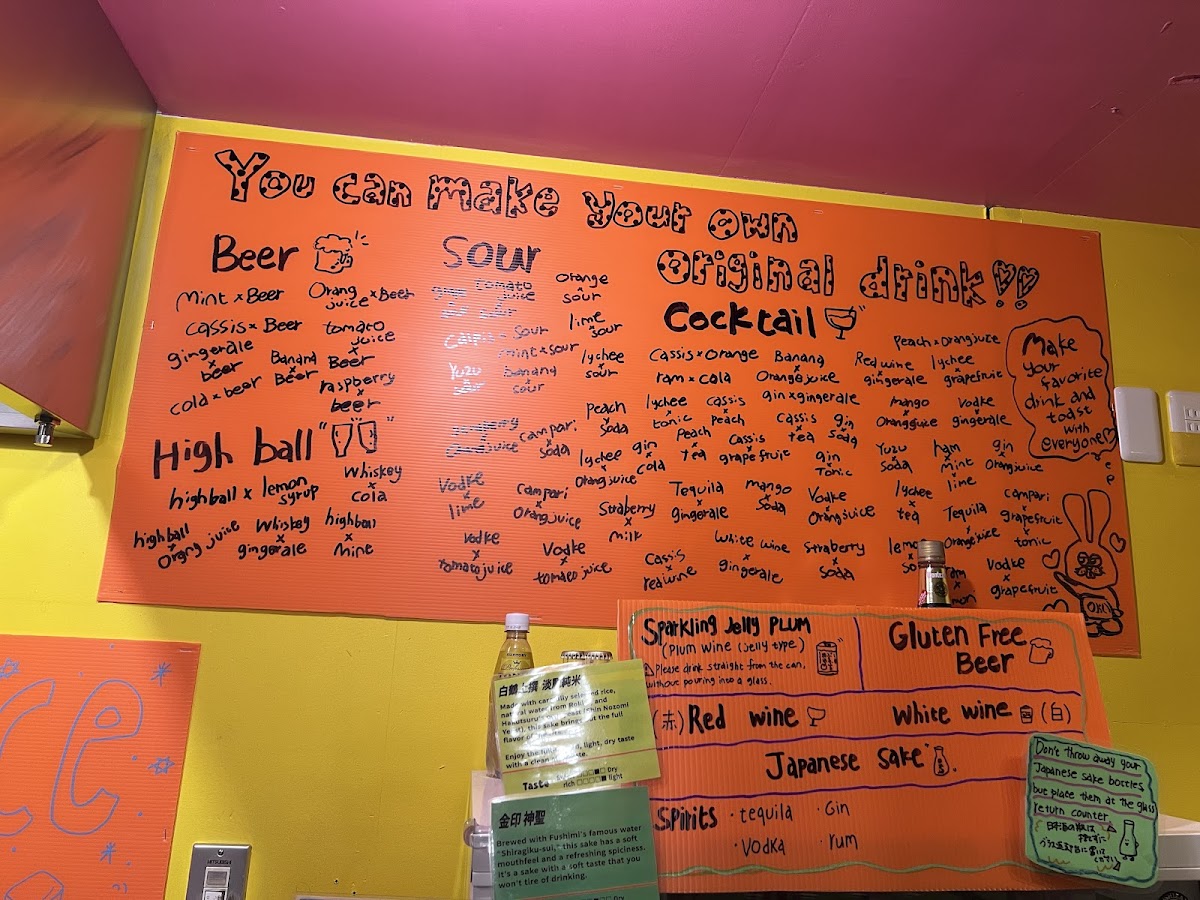 You can make your own
original drink!!
Beer
mint × Beer
Orang juice × Beer
cassis × Beer
tomato juice × Beer
gingerale × beer
Banana × Beer
cola × beer
raspberry × beer
High ball
highball × lemon syrup
Whiskey × cola
highball × Orang juice
Whiskey × gingerale
highball × Mint
Sour
tomato juice
orange × sour
lime × sour
mint × sour
lychee × sour
Yuzu
banana × sour
campari × soda
Peach × soda
lychee × Orangjuice
Vodke × lime
campari × Orangjuice
Vodke × tomatojuice
Vodke × tomatojuice
Cocktail
Cassis × Orange
Banana × Orangejuice
Red wine × gingerale
Peach × Orangjuice
lychee × grapefruit
ram × cola
gin × gingerale
lychee × tonic
cassis × Peach
cassis × tea
gin × soda
mango × Orangjuice
Vodke × gingerale
gin × cola
Peach × tea
Cassis × grapefruit
gin × Tonic
Yuzu × Soda
ham × Mint × lime
gin × Orangjuice
Straberry × milk
Tequila × gingerale
mango × Soda
Vodke × Orangjuice
lychee × tea
Tequila × Orangejuice
campari × grapefruit × tonic
Cassis × redwine
White wine × gingerale
straberry × soda
Vodke × grapefruit
Make
your
favorite
drink and
toast
with
everyone♡
Sparkling Jelly PLUM
(Plum wine (jelly type)
⚠Please drink straight from the can,
without pouring into a glass.
Gluten Free
Beer
(赤) Red wine
White wine (白)
Japanese Sake
Spirits
・tequila ・Gin
・Vodka ・rum
白鶴 上撰 淡麗純米
Made with carefully selected rice,
natural water from
this sake brings out the full
Enjoy the light, dry taste
with a clean
Taste
Dry
rich
light
金印 神聖
Brewed with Fushimi's famous water
"Shiragiku-sui," this sake has a soft
mouthfeel and a refreshing spiciness.
it's a sake with a soft taste that you
won't tire of drinking.
Dry
Don't throw away your
Japanese sake bottles,
but place them at the glass
return counter